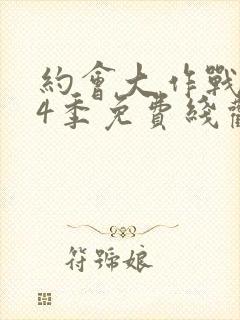 約會大作戰
4季免費綫觀
符號娘